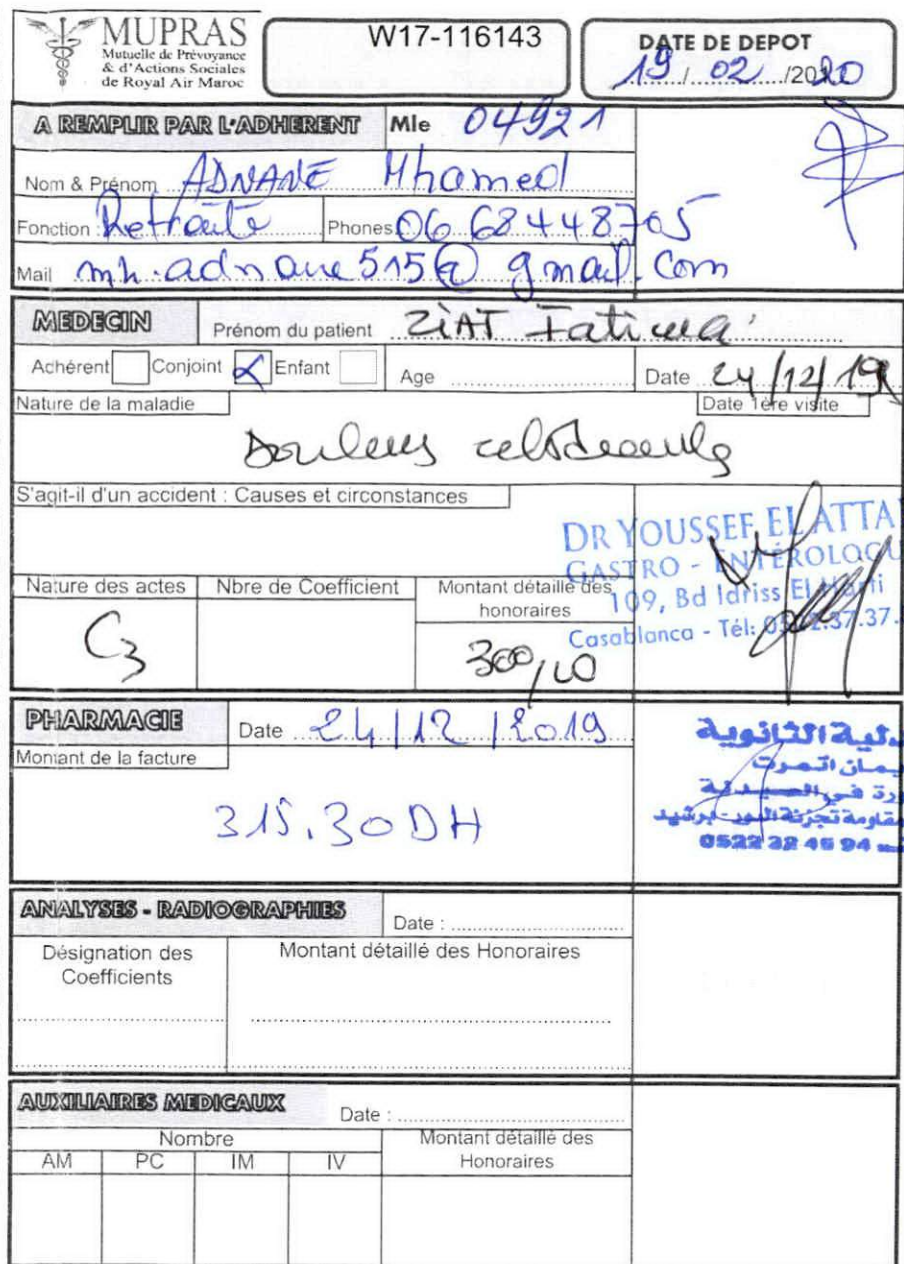 MUPRAS
Mutuelle de Prévoyance
& d'Actions Sociales
de Royal Air Maroc
W17-116143
DATE DE DEPOT
19/02/2020
A REMPLIR PAR L'ADHERENT Mle 04921
Nom & Prénom ADNANE Mhamed
Fonction : Retraité Phones 06 68 44 87 05
Mail mh.adnane515@gmail.com
MEDECIN Prénom du patient ZIAT Fatima
Achérent Conjoint Enfant Age Date 24/12/19
Nature de la maladie Date 1ère visite
Douleurs
S'agit-il d'un accident : Causes et circonstances
DR YOUSSEF EL ATTA
GASTRO - ENTÉROLOGU
109, Bd Idriss El
Casablanca - Tél: 37.37.
Nature des actes Nbre de Coefficient Montant détaillé des honoraires
C3 300,00
PHARMACIE Date 24/12/2019
Montant de la facture
315.30 DH
دلية الثانوية
يمان اتمرت
ورة في الصيدلة
0522 32 46 94
ANALYSES - RADIOGRAPHIES Date :
Désignation des Coefficients Montant détaillé des Honoraires
AUXILIAIRES MEDICAUX Date :
Nombre Montant détaillé des Honoraires
AM PC IM IV